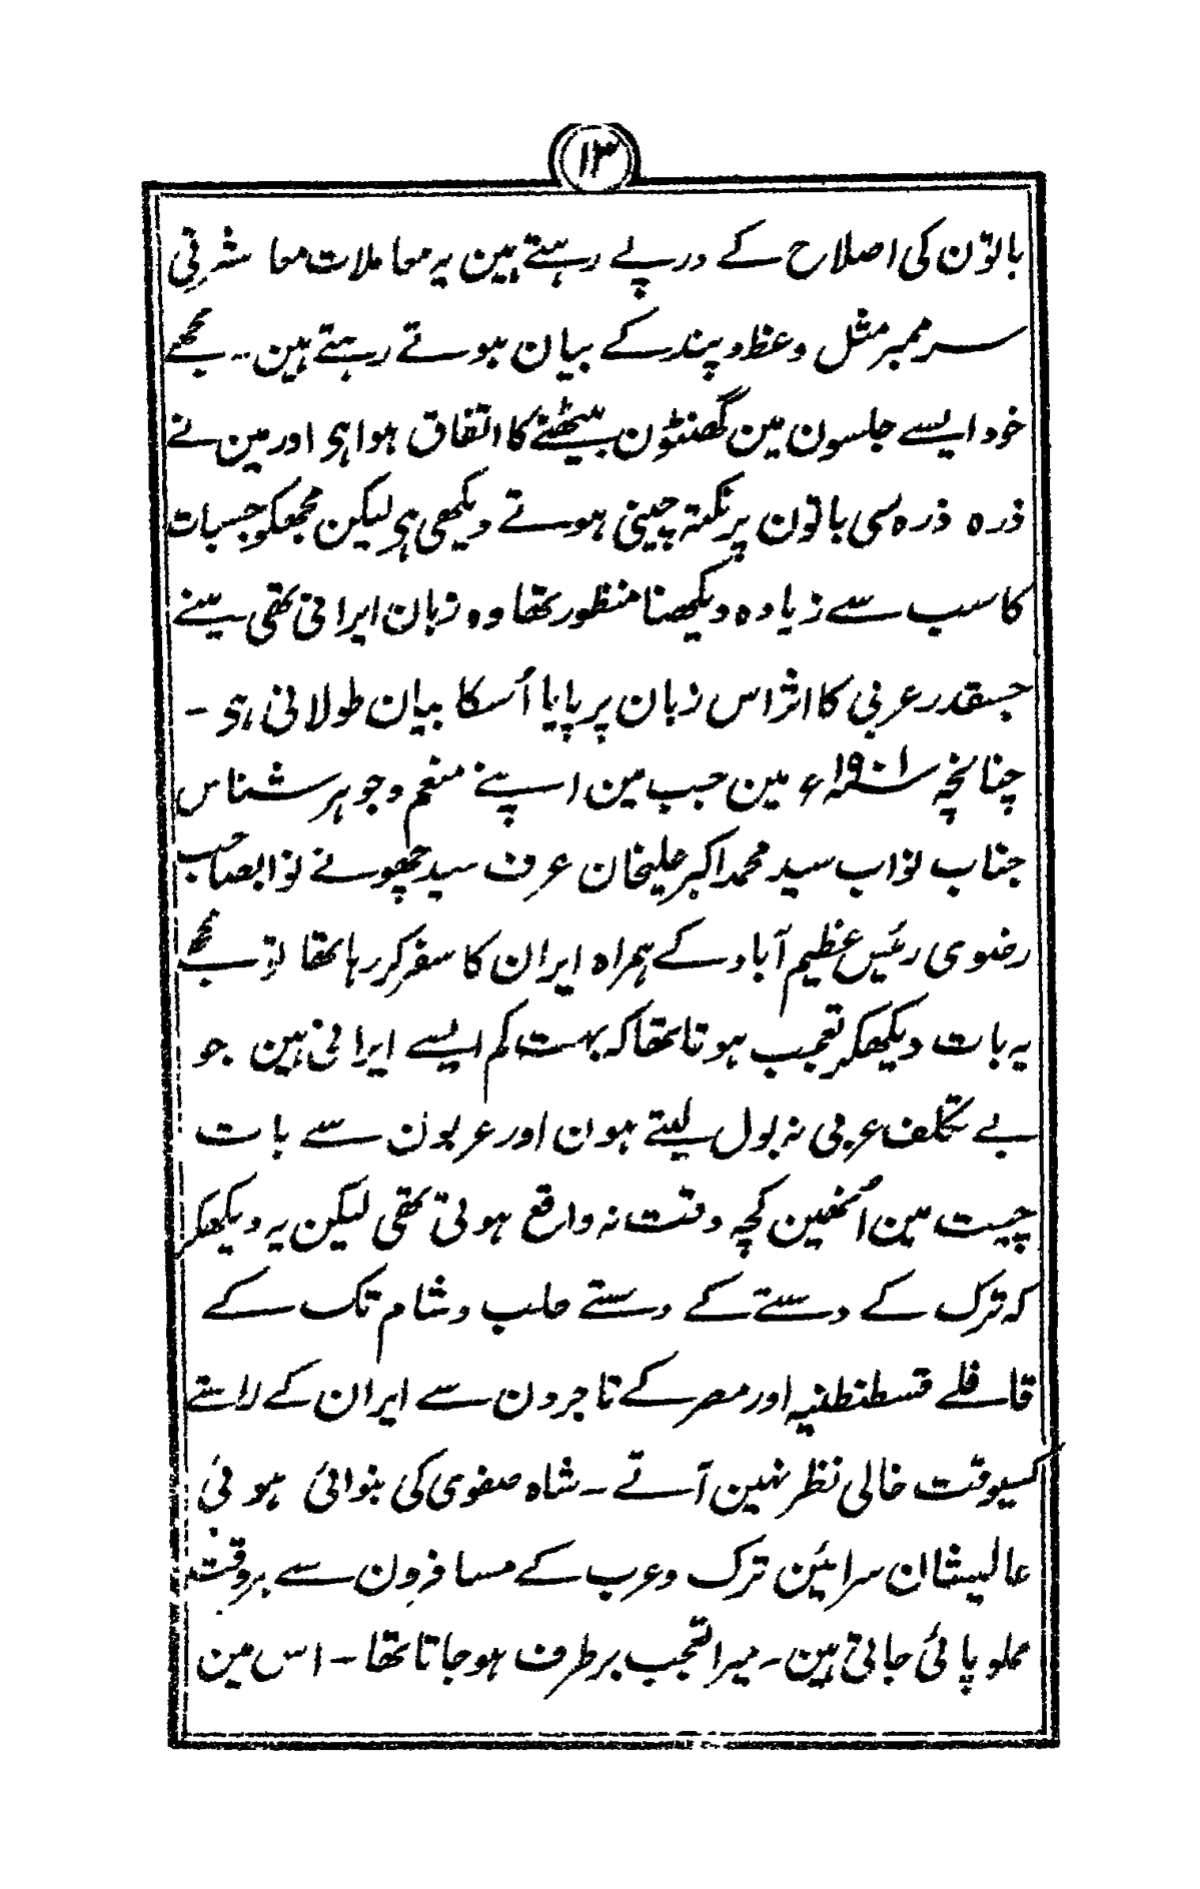 ۱۳
باتون کی اصلاح کے درپے رہتے ہین یہ معاملات معاشرتی
سرممبر مثل وعظ و پند کے بیان ہوتے رہتے ہین۔ مجھے
خود ایسے جلسون مین گھنٹون بیٹھنے کا اتفاق ہوا ہی اور مین نے
ذرہ ذرہ سی باتون پر نکتہ چینی ہوتے دیکھی ہی لیکن مجھکو جسبات
کا سب سے زیادہ دیکھنا منظور تھا وہ زبان ایرانی تھی مینے
جسقدر عربی کا اثر اس زبان پر پایا اُسکا بیان طولانی ہی۔
چنانچہ سنہ ۱۹۰۱ء مین جب مین اپنے منعم وجوہر شناس
جناب نواب سید محمد اکبر علیخان عرف سید چھوٹے نوابصاحب
رضوی رئیس عظیم آباد کے ہمراہ ایران کا سفر کر رہا تھا تو مجھے
یہ بات دیکھکر تعجب ہوتا تھا کہ بہت کم ایسے ایرانی ہین جو
بے تکلف عربی نہ بول لیتے ہون اور عربون سے بات
چیت مین اُنھین کچھ دقت نہ واقع ہوتی تھی لیکن یہ دیکھکر
کہ ترک کے دستے کے دستے حلب وشام تک کے
قافلے قسطنطنیہ اور مصر کے تاجرون سے ایران کے راستے
کسیوقت خالی نظر نہین آتے۔ شاہ صفوی کی بنوائی ہوئی
عالیشان سرائین ترک وعرب کے مسافرون سے ہروقت
مملو پائی جاتی ہین۔ میرا تعجب برطرف ہو جاتا تھا۔ اس مین